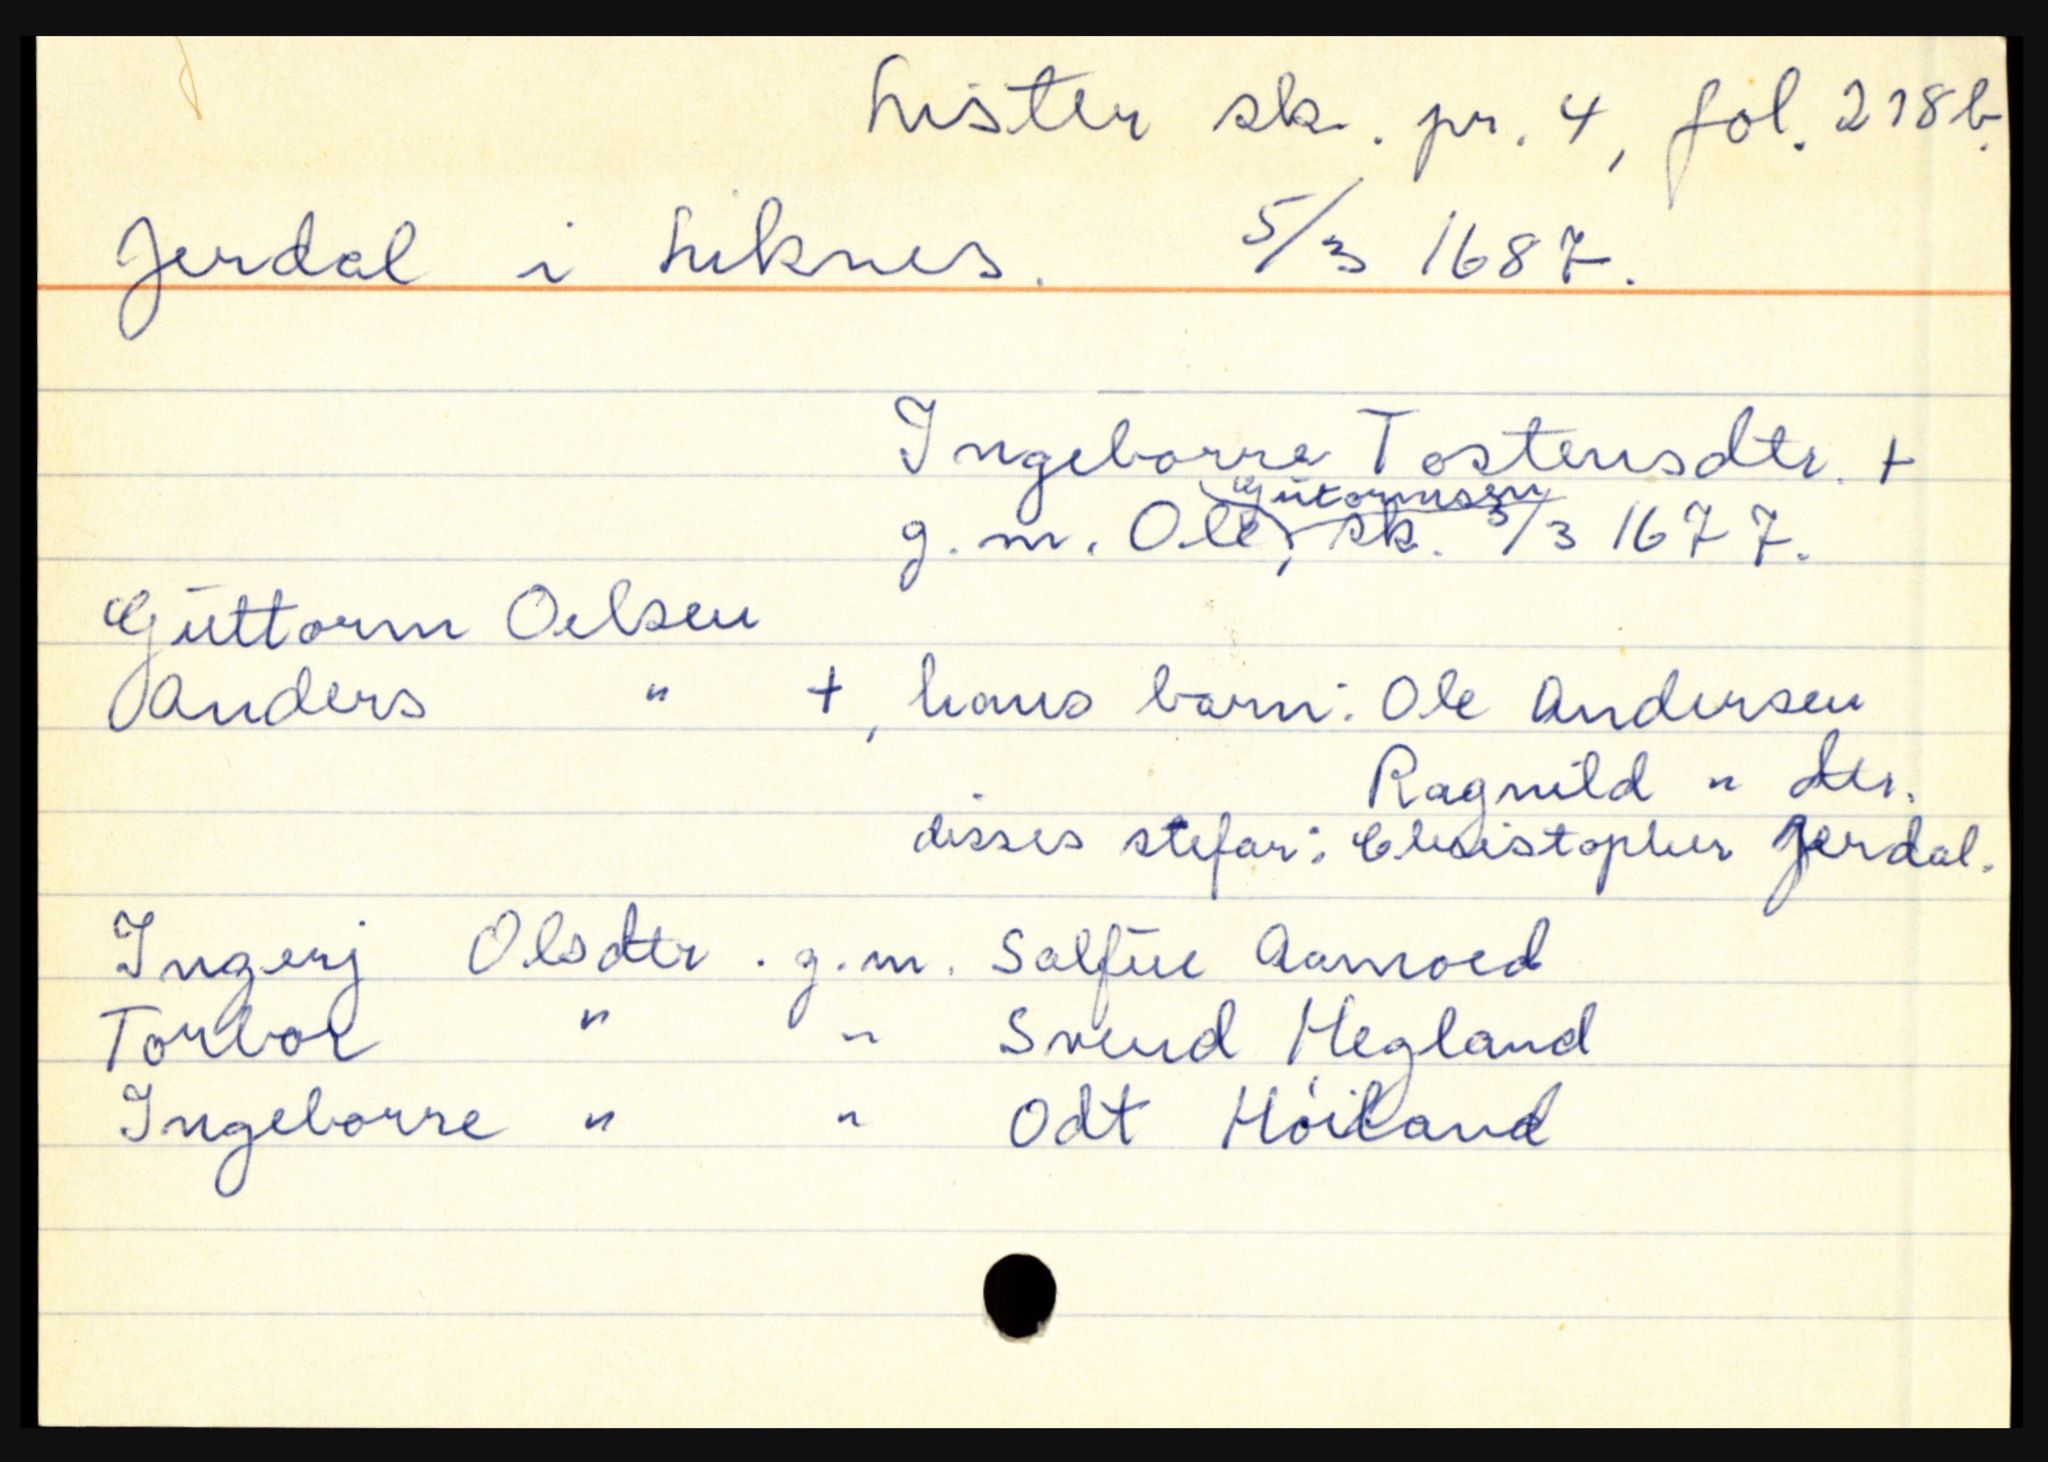 Lister sk. pr. 4, fol. 218b.
Jerdal i Liknes. 5/3 1687.
Ingeborre Tostensdtr. +
Gutormsen
g.m. Ole, sk. 5/3 1677.
Guttorm Oelsen
Anders " +, hans barn: Ole Andersen
Ragnild " dtr.
disses stefar: Christopher Jerdal.
Ingerj Olsdtr. g.m. Salfue Aamoed
Torbor " " Svend Hegland
Ingeborre " " Odt Höiland